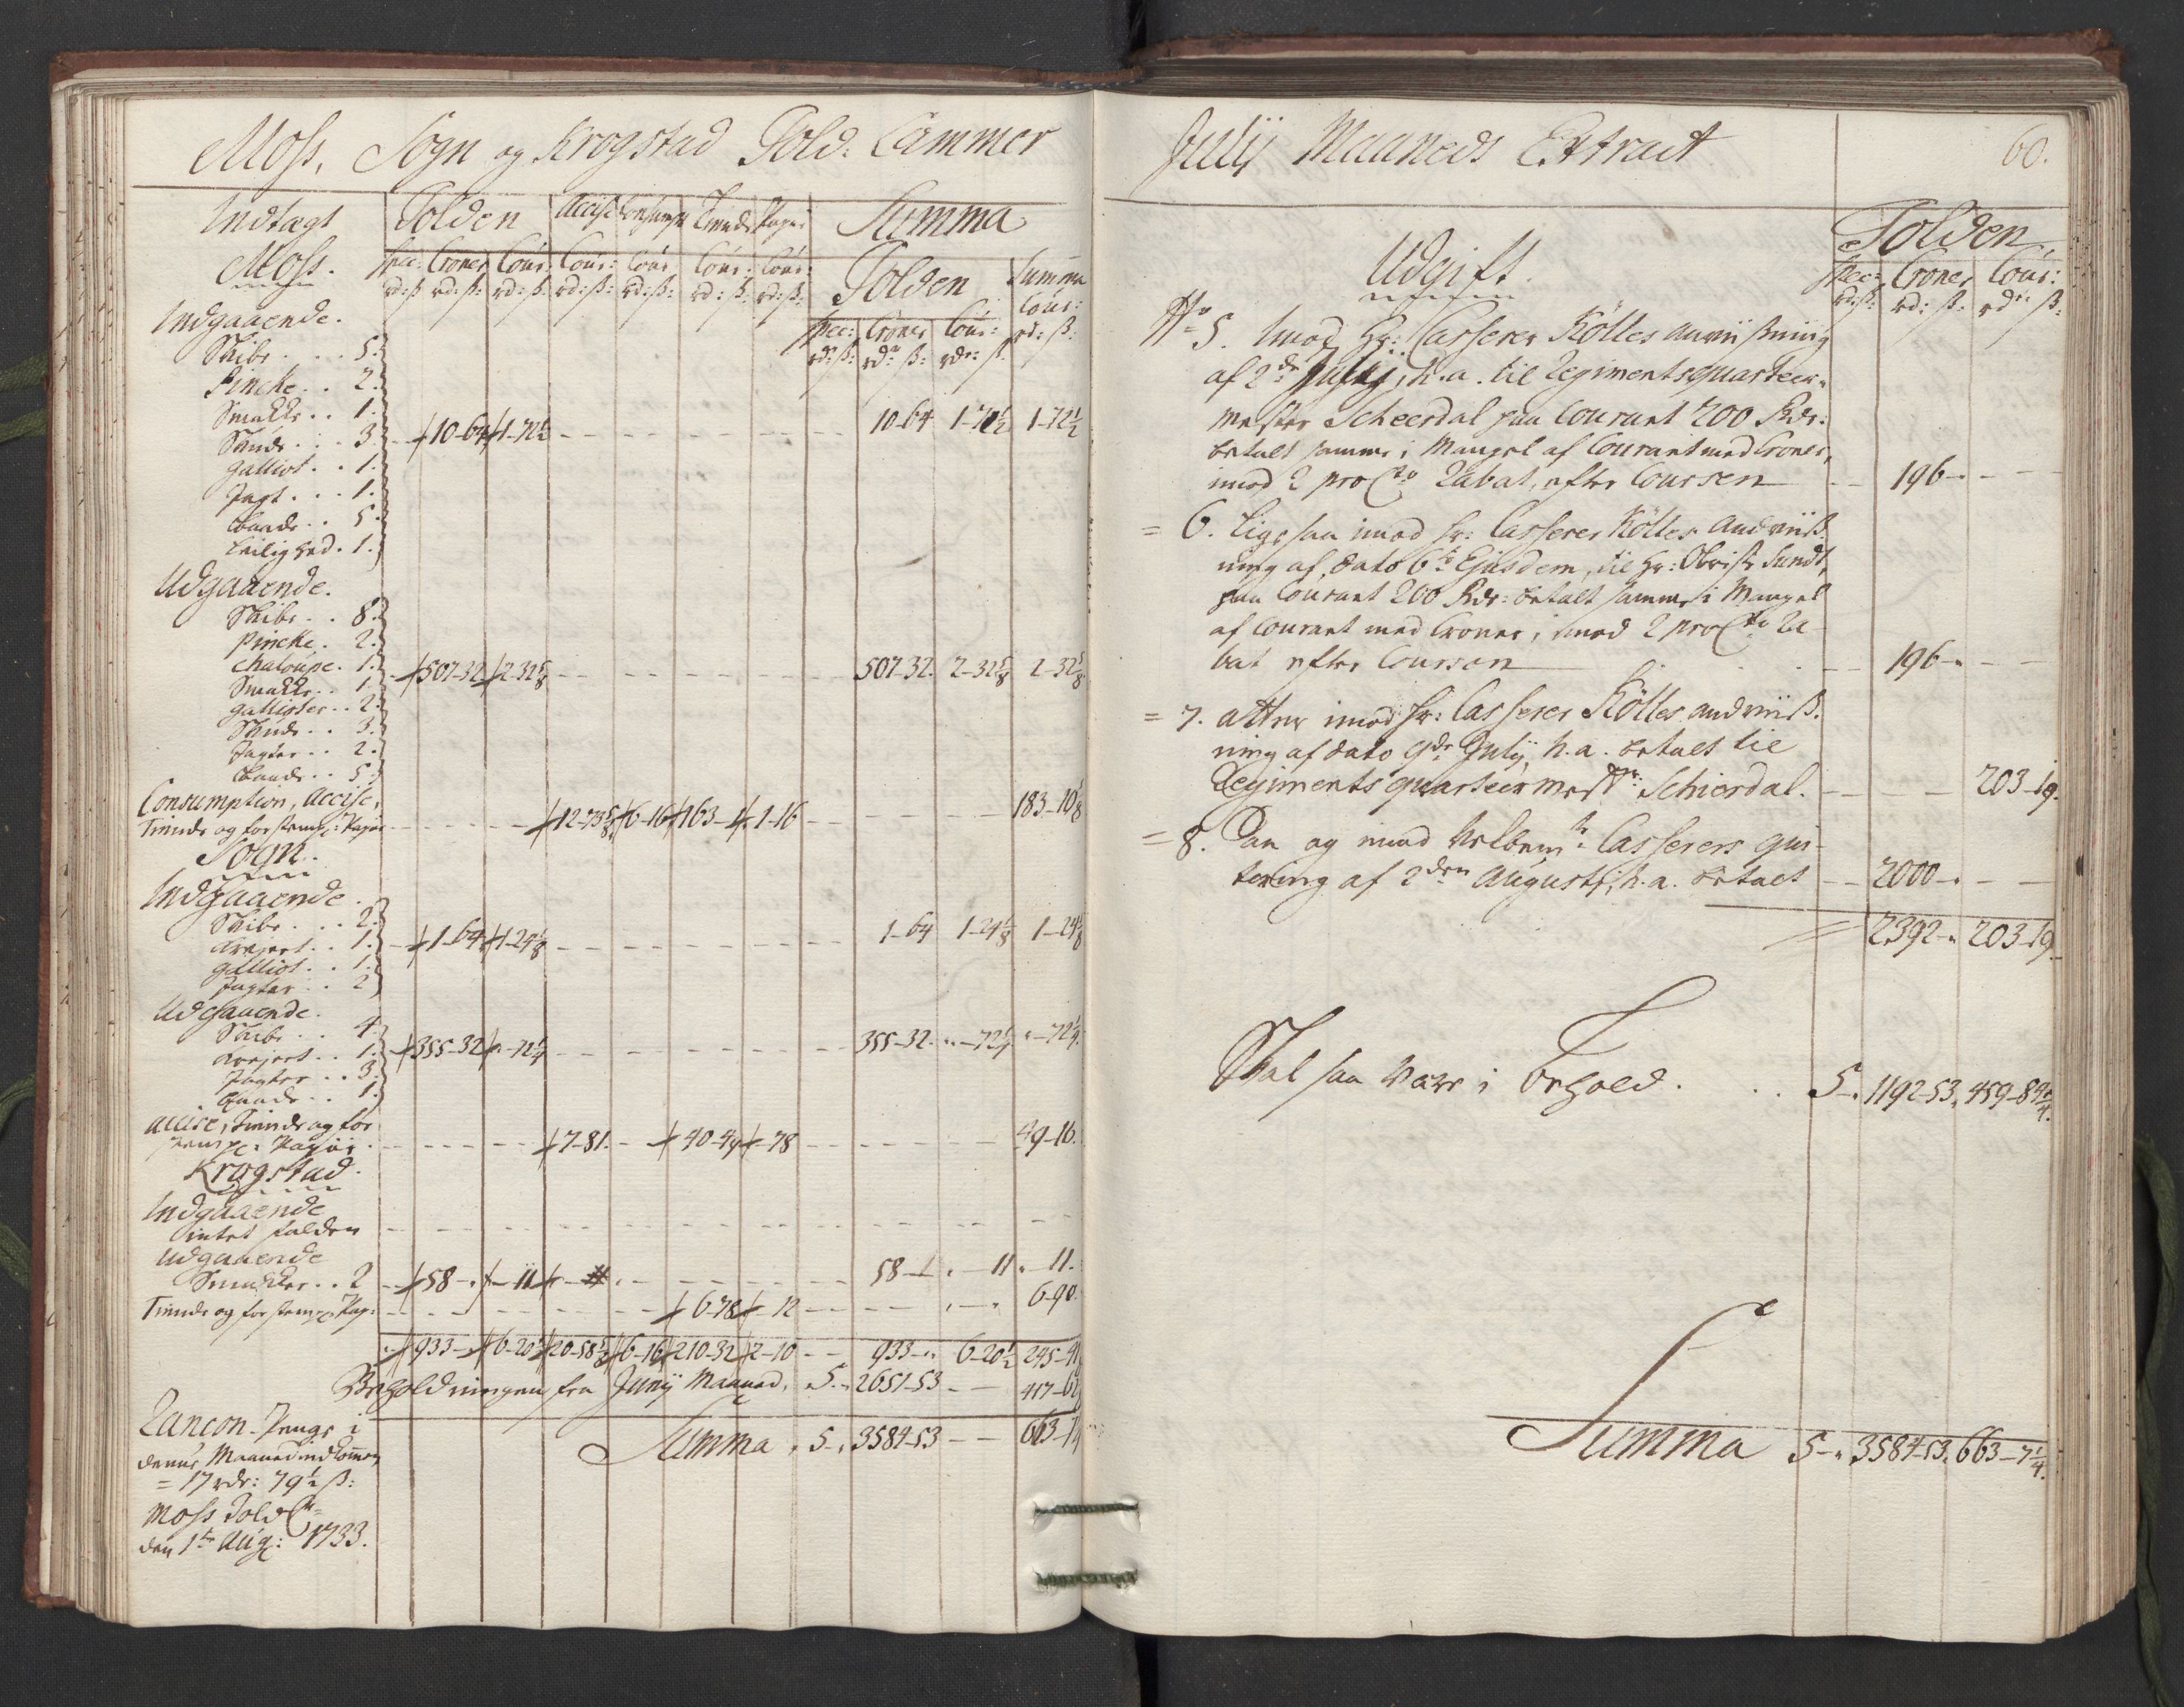 Moss, Sogn og Krogstad Told: Cammer
Indtægt Tolden Accise Consumpt Tiende Papir Summa
Moss. Spec: Croner Cour: Cour: Cour Cour: Cour: Tolden Summa
rd: ß rd: ß: rd: ß: rd: ß: rd: ß: rd: ß: rd: ß: Cour:
Indgaaende. Spec: Croner Cour: rd: ß:
Skibe . . . 5. rd: ß: rdr ß: rdr: ß:
Pincke . . 2.
Smakke . . 1.
Skude . . . 3. 10-64 1-72½ 10-64 1-72½ 1-72½
Galliot . . 1.
Jagt . . . 1.
Baade . . 5.
Leilighed . 1.
Udgaaende.
Skibe . . 8.
Pincke . 2.
Chaloupe . 1. 507-32 2-32⅝ 507-32. 2-32⅝ 2-32⅝
Smakke . . 1.
Gallioter . . 2.
Skude . . 3.
Jagter . . 2.
Baade . . 5.
Consumption, Accise,
Tiende og forstempl: Papiir 12-73⅝ 6-16 163-1 1-16 183-10⅛
Sogn.
Indgaaende.
Skibe . . . 2.
Krejert . . 1. 1-64 1-24⅛ 1-64 1-24⅛ 1-24⅛
Galliot . . 1.
Jagter . . 2
Udgaaende.
Skibe . . 4.
Krejert . . 1. 355-32 "-72¼ 355-32. "-72¼ "-72¼.
Jagter . . 3.
Baade . . 1.
Accise, Tiende og for
stempl: Papiir . 7-81. 40-49 -78 49-16.
Krogstad.
Indgaaende
intet falden
Udgaaende
Smakker . . 2 58-" -11 58- "-11 "-11.
Tiende og forstempl Pap: 6-78 -12 6-90.
933-" 6-20½ 20-58⅝ 6-16 210-32 2-10 933-" 6-20½ 245-41
Beholdningen fra Junij Maaned, 5-" 2651-53 - - 417-62
Rancon-Penge i Summa " 5-" 3584-53 - - 663-7¼
denne Maaned indkommen
= 17 rdr: 79½ ß:
Moss Told Cr
den 1te Aug: 1733.
Julij Maaneds Extract 60.
Tolden
Udgift. Spec: Croner Cour:
rd: ß: rd: ß: rdr ß:
No 5. Imod Hr: Casserer Kölles Anviißning
af 2de Julij, h.a. til Regimentsquarteer-
mester Scheerdal paa Courant 200 Rdr:
betalt samme i Mangel af Courant med Croner,
imod 2 pro Cto Rabat, efter Coursen 196-" -
= 6. Lige saa imod Hr: Casserer Kölles Andviiß-
ning af dato 6te Ejusdem, til Hr: Obriste Sundt,
paa Courant 200 Rdr: betalt samme i Mangel
af Courant med Croner, imod 2 pro Cto Ra-
bat efter Coursen 196-" -
= 7. Atter imod Hr: Casserer Kölles andviiß-
ning af dato 9de Julij, h.a. betalt til
Regiments quarteermestr: Schierdal. 203-19.
= 8. Paa og imod Velbemte Casserers qui-
tering af 2den Augusti, h.a. betalt 2000-" -
2392-" 203-19.
Skal saa være i Behold . . 5-" 1192-53. 459-84¼.
Summa 5-" 3584-53. 663-7¼.